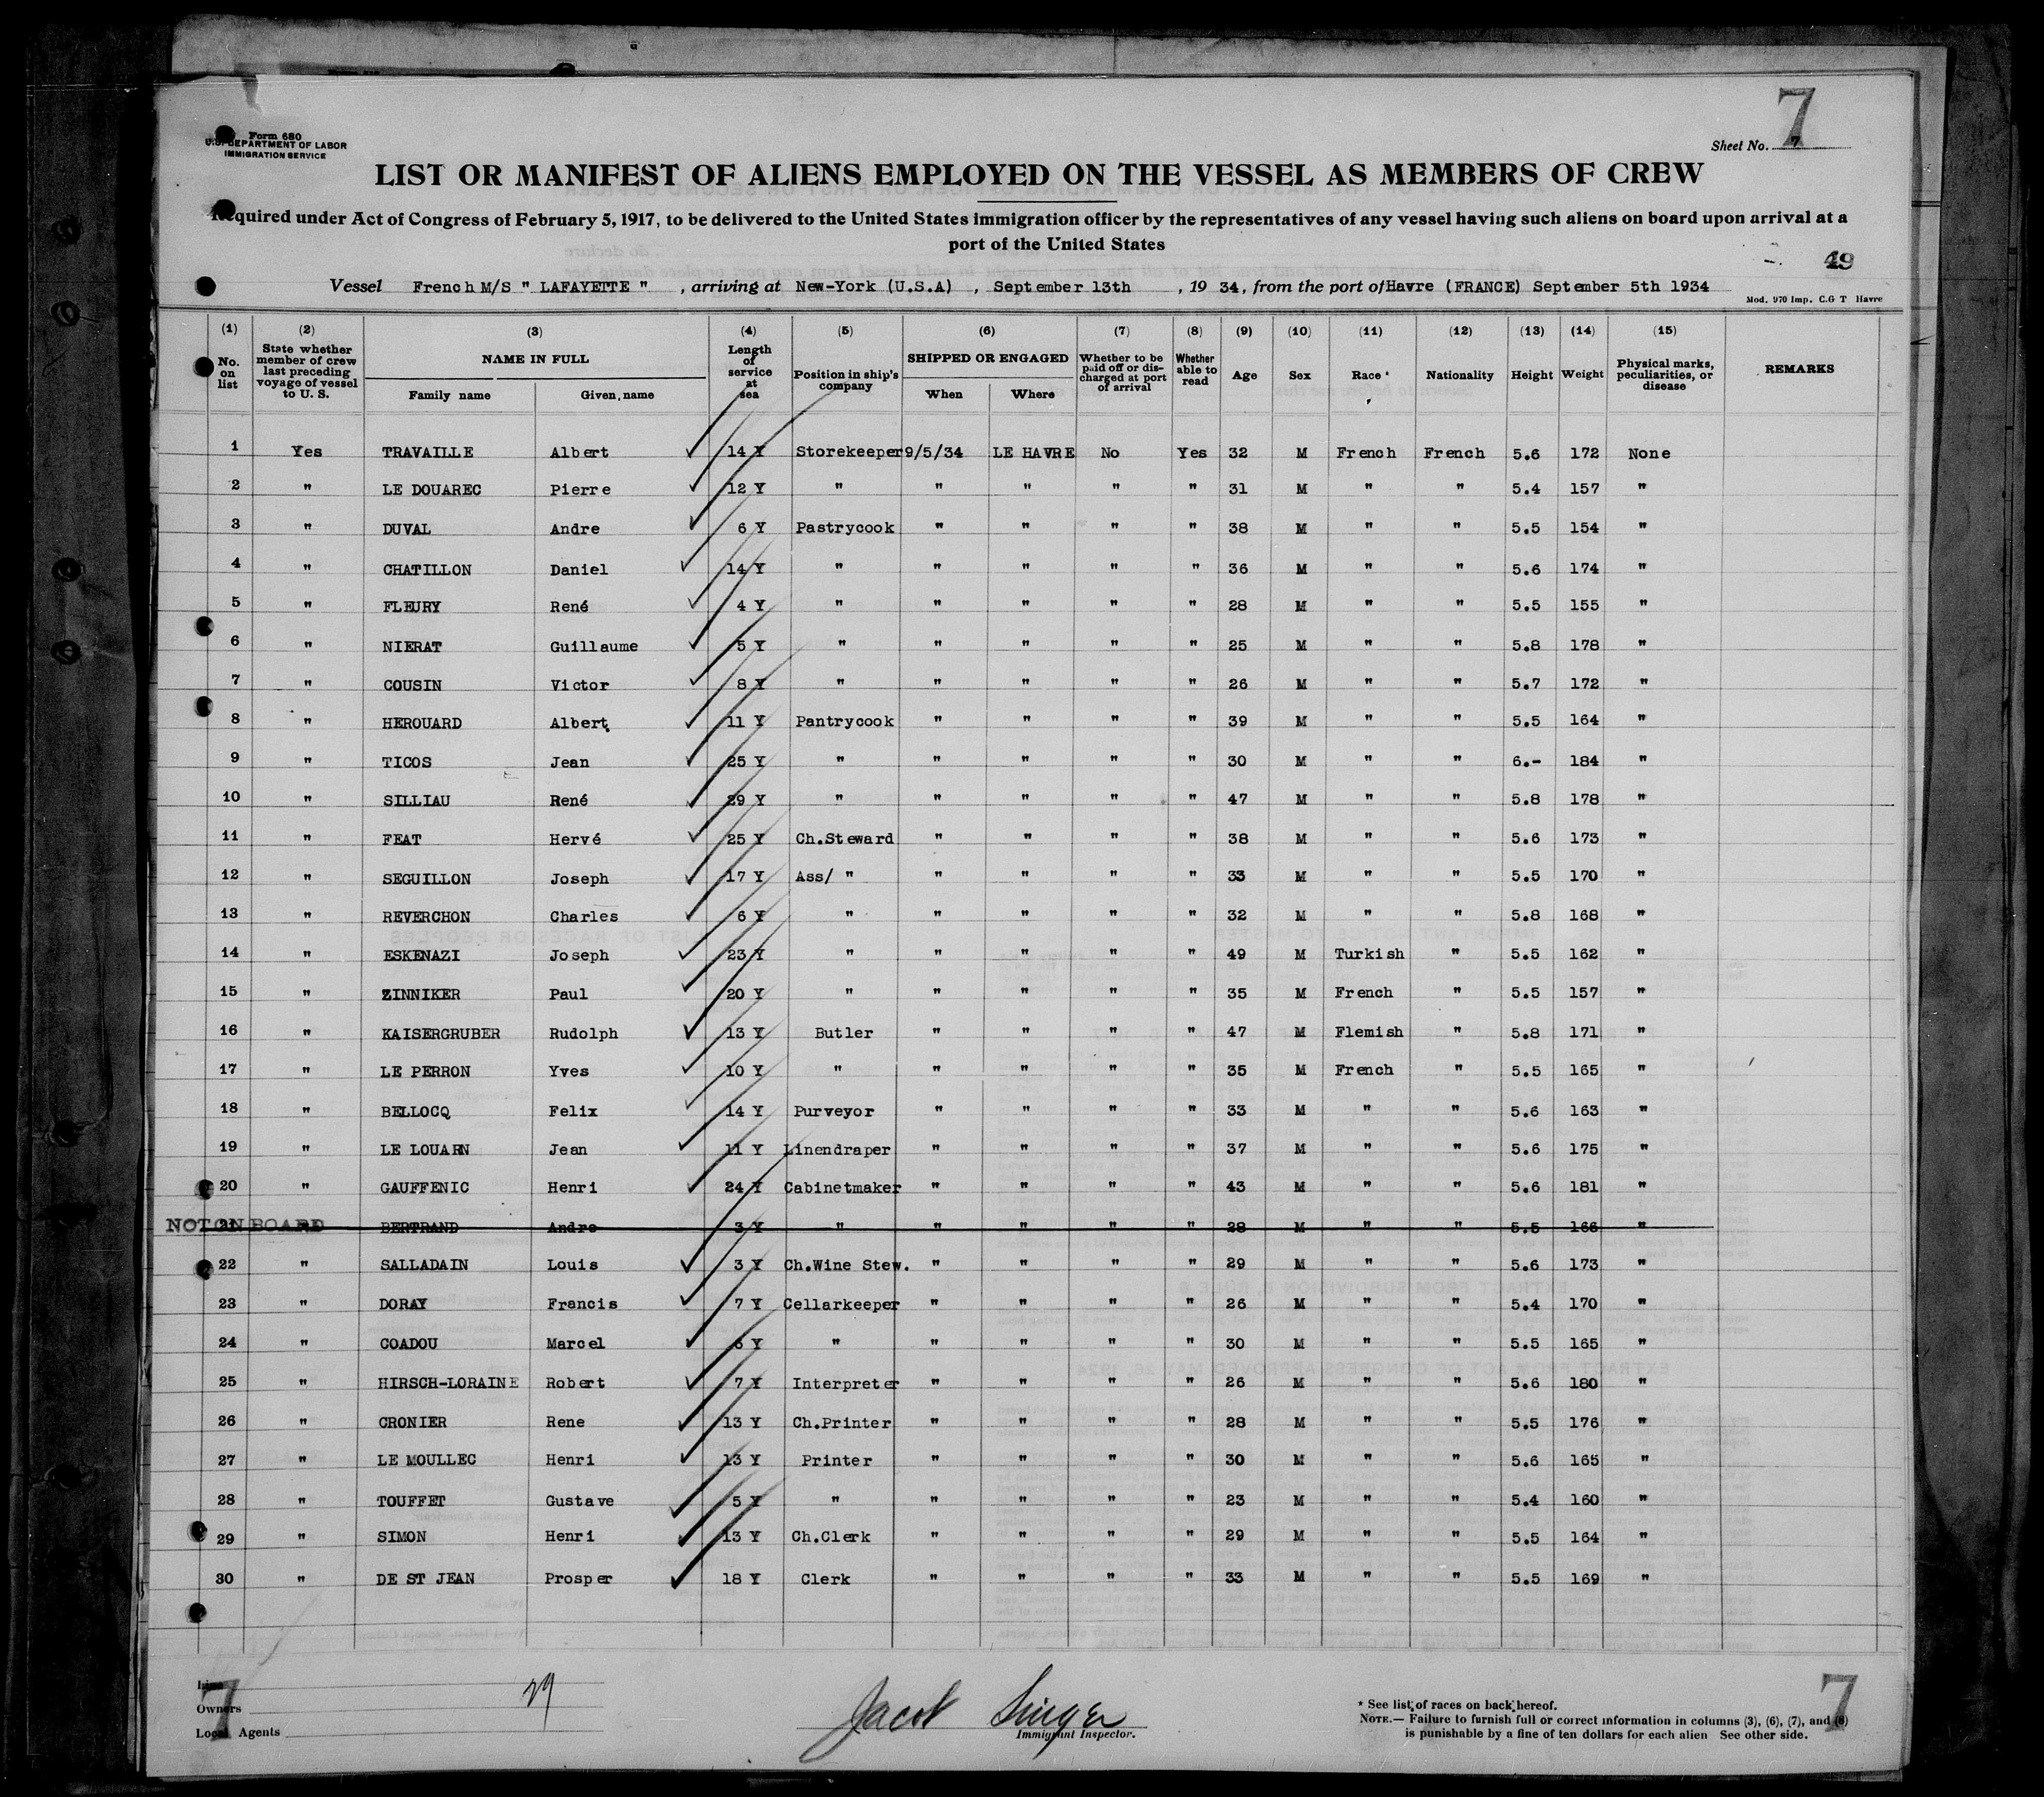 7
Form 680
U.S. DEPARTMENT OF LABOR
IMMIGRATION SERVICE
Sheet No. 7
LIST OR MANIFEST OF ALIENS EMPLOYED ON THE VESSEL AS MEMBERS OF CREW
Required under Act of Congress of February 5, 1917, to be delivered to the United States immigration officer by the representatives of any vessel having such aliens on board upon arrival at a
port of the United States
49
Vessel French M/S " LAFAYETTE " , arriving at New-York (U.S.A) , September 13th , 19 34, from the port of Havre (FRANCE) September 5th 1934
Mod. 970 Imp. C.G T Havre
(1) No. on list (2) State whether member of crew last preceding voyage of vessel to U. S. (3) NAME IN FULL Family name Given name (4) Length of service at sea (5) Position in ship's company (6) SHIPPED OR ENGAGED When Where (7) Whether to be paid off or discharged at port of arrival (8) Whether able to read (9) Age (10) Sex (11) Race * (12) Nationality (13) Height (14) Weight (15) Physical marks, peculiarities, or disease REMARKS
1 Yes TRAVAILLE Albert 14 Y Storekeeper 9/5/34 LE HAVRE No Yes 32 M French French 5.6 172 None
2 " LE DOUAREC Pierre 12 Y " " " " " 31 M " " 5.4 157 "
3 " DUVAL Andre 6 Y Pastrycook " " " " 38 M " " 5.5 154 "
4 " CHATILLON Daniel 14 Y " " " " " 36 M " " 5.6 174 "
5 " FLEURY René 4 Y " " " " " 28 M " " 5.5 155 "
6 " NIERAT Guillaume 5 Y " " " " " 25 M " " 5.8 178 "
7 " COUSIN Victor 8 Y " " " " " 26 M " " 5.7 172 "
8 " HEROUARD Albert 11 Y Pantrycook " " " " 39 M " " 5.5 164 "
9 " TICOS Jean 25 Y " " " " " 30 M " " 6.- 184 "
10 " SILLIAU René 29 Y " " " " " 47 M " " 5.8 178 "
11 " FEAT Hervé 25 Y Ch.Steward " " " " 38 M " " 5.6 173 "
12 " SEGUILLON Joseph 17 Y Ass/ " " " " " 33 M " " 5.5 170 "
13 " REVERCHON Charles 6 Y " " " " " 32 M " " 5.8 168 "
14 " ESKENAZI Joseph 23 Y " " " " " 49 M Turkish " 5.5 162 "
15 " ZINNIKER Paul 20 Y " " " " " 35 M French " 5.5 157 "
16 " KAISERGRUBER Rudolph 13 Y Butler " " " " 47 M Flemish " 5.8 171 "
17 " LE PERRON Yves 10 Y " " " " " 35 M French " 5.5 165 "
18 " BELLOCQ Felix 14 Y Purveyor " " " " 33 M " " 5.6 163 "
19 " LE LOUARN Jean 11 Y Linendraper " " " " 37 M " " 5.6 175 "
20 " GAUFFENIC Henri 24 Y Cabinetmaker " " " " 43 M " " 5.6 181 "
NOT ON BOARD 21 " BERTRAND Andre 3 Y " " " " " 28 M " " 5.5 166 "
22 " SALLADAIN Louis 3 Y Ch.Wine Stew. " " " " 29 M " " 5.6 173 "
23 " DORAY Francis 7 Y Cellarkeeper " " " " 26 M " " 5.4 170 "
24 " COADOU Marcel 6 Y " " " " " 30 M " " 5.5 165 "
25 " HIRSCH-LORAINE Robert 7 Y Interpreter " " " " 26 M " " 5.6 180 "
26 " CRONIER Rene 13 Y Ch.Printer " " " " 28 M " " 5.5 176 "
27 " LE MOULLEC Henri 13 Y Printer " " " " 30 M " " 5.6 165 "
28 " TOUFFET Gustave 5 Y " " " " " 23 M " " 5.4 160 "
29 " SIMON Henri 13 Y Ch.Clerk " " " " 29 M " " 5.5 164 "
30 " DE ST JEAN Prosper 18 Y Clerk " " " " 33 M " " 5.5 169 "
Line
Owners
Local Agents
7
29
Jacob Singer
Immigrant Inspector.
* See list of races on back hereof.
NOTE.— Failure to furnish full or correct information in columns (3), (6), (7), and (8)
is punishable by a fine of ten dollars for each alien See other side.
7